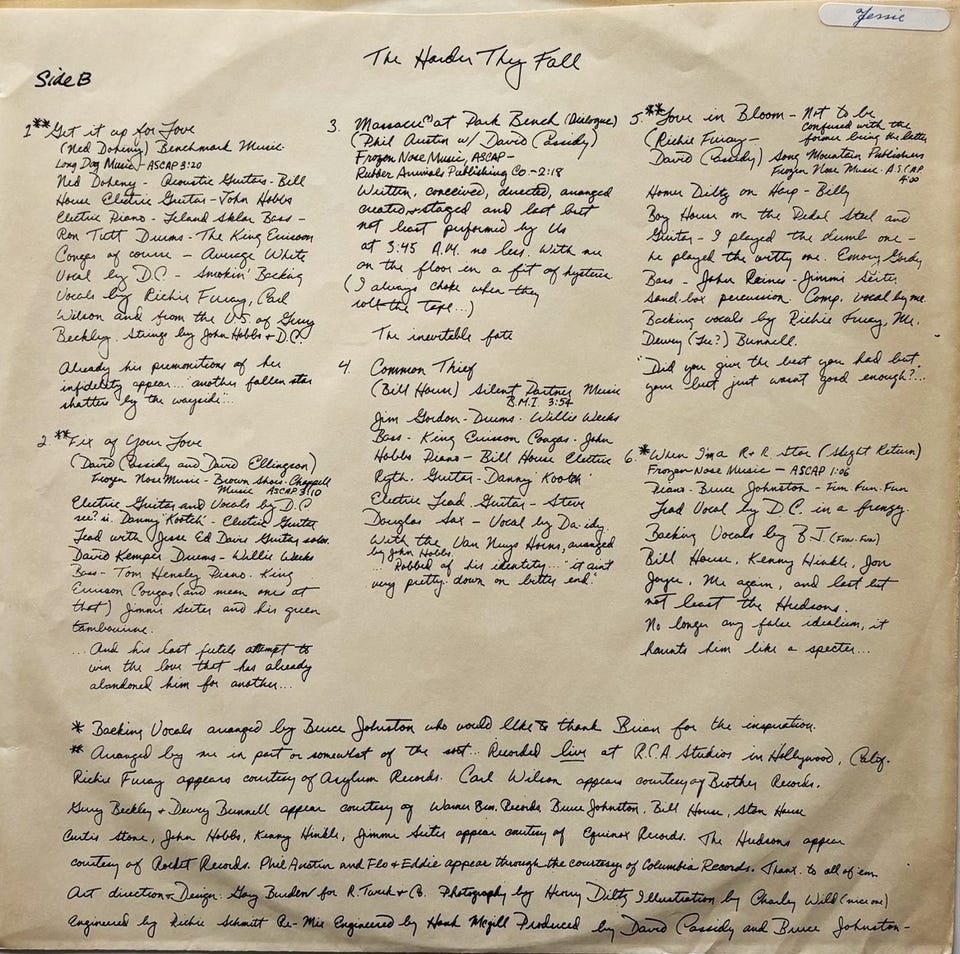 Jessie
The Harder They Fall
Side B
1 ** Get it up for Love
(Ned Doheny) Benchmark Music-
Long Dog Music - ASCAP 3:20
Ned Doheny - Acoustic Guitars - Bill
House Electric Guitar - John Hobbs
Electric Piano - Leland Sklar Bass -
Ron Tutt Drums - The King Errisson
Congas of course - Average White
Vocal by D.C. - Smokin' Backing
Vocals by Richie Furay, Carl
Wilson and from the U.S. of Gerry
Beckley. Strings by John Hobbs + D.C.
Already his premonitions of her
infidelity appear... "another fallen star
shatters by the wayside"...
2 ** Fix of Your Love
(David Cassidy and David Ellingson)
Frozen Nose Music - Brown Shoes - Chappell
Music ASCAP 3:10
Electric Guitar and Vocals by D.C.
see? ii. Danny "Kootch" - Electric Guitar
Lead with Jesse Ed Davis Guitar solos.
David Kemper Drums - Willie Weeks
Bass - Tom Hensley Piano. King
Errisson Congas (and mean ones at
that) Jimmie Seiter and his green
tambourine.
...And his last futile attempt to
win the love that has already
abandoned him for another...
3. Massacre(?) at Park Bench (Dialogue)
(Phil Austin w/ David Cassidy)
Frozen Nose Music, ASCAP -
Rubber Arrivals Publishing Co - 2:18
Written, conceived, directed, arranged
created + staged and last but
not least performed by Us
at 3:45 A.M. no less. With me
on the floor in a fit of hysteria
(I always choke when they
roll the tape...)
The inevitable fate
4. Common Thief
(Bill House) Silent Partner Music
B.M.I. 3:54
Jim Gordon - Drums - Willie Weeks
Bass - King Errisson Congas - John
Hobbs Piano - Bill House Electric
Ryth. Guitar - Danny Kootch
Electric Lead Guitar - Steve
Douglas Sax - Vocal by Da-idy.
With the Van Nuys Horns, arranged
by John Hobbs.
..."Robbed of his identity..." it aint
very pretty down on bitter end."
5. ** Love in Bloom - Not to be
confused with the
former being the latter
(Richie Furay -
David Cassidy) Song Mountain Publishers
Frozen Nose Music - A.S.C.A.P.
4:00
Henry Diltz on Harp - Billy
Boy House on the Pedal Steel and
Guitar - I played the dumb one -
he played the witty one. Emory Gordy
Bass - John Raines - Jimmie Seiter
Sand-box percussion. Comp. vocal by me.
Backing vocals by Richie Furay, Me.
Dewey (Lee?) Bunnell.
"Did you give the best you had but
your best just wasn't good enough?"...
6. * When I'm a R + R. star (Slight Return)
Frozen Nose Music - ASCAP 1:06
Piano - Bruce Johnston - Fun. Fun. Fun
Lead Vocal by D.C. in a frenzy.
Backing Vocals by B.J. (Fun. Fun)
Bill House, Kenny Hinkle, Jon
Joyce, Me again, and last but
not least the Hudsons.
No longer any false idealism, it
haunts him like a specter...
* Backing Vocals arranged by Bruce Johnston who would like to thank Brian for the inspiration.
** Arranged by me in part or somewhat of the sort... Recorded live at R.C.A Studios in Hollywood, Calif.
Richie Furay appears courtesy of Asylum Records. Carl Wilson appears courtesy of Brother Records.
Gerry Beckley + Dewey Bunnell appear courtesy of Warner Bros. Records. Bruce Johnston, Bill House, Stan House
Curtis Stone, John Hobbs, Kenny Hinkle, Jimmie Seiter appear courtesy of Equinox Records. The Hudsons appear
courtesy of Rocket Records. Phil Austin and Flo + Eddie appear through the courtesy of Columbia Records. Thanx. to all of em.
Art direction + Design: Gary Burden for R. Twerk + Co. Photography by Henry Diltz Illustration by Charley Wild (nice one)
Engineered by Richie Schmitt Re-Mix Engineered by Hank McGill Produced by David Cassidy and Bruce Johnston -